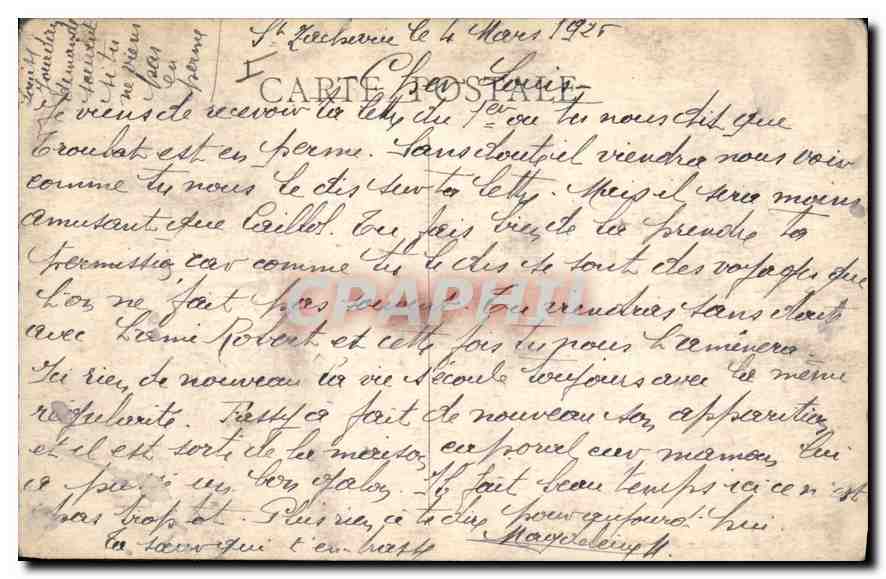 St Zacharie le 4 Mars 1925
I
CARTE POSTALE
Cher Louis
Je viens de recevoir ta lettre du 1er ou tu nous dit que
Troubat est en perme. Sans doute il viendra nous voir
comme tu nous le dis sur ta lettre. Mais il sera moins
amusant que Caillol. Tu fais bien de la prendre ta
permission car comme tu le dis se sont des voyages que
l'on ne fait pas souvent. Tu viendras sans doute
avec l'ami Robert et cette fois tu nous l'amènera
Ici rien de nouveau la vie s'écoule toujours avec la même
régularité. Fassy a fait de nouveau son apparition
et il est sorti de la maison caporal, car maman lui
a passé un bon galon. Il fait beau temps ici ce n'est
pas trop tot. Plus rien a te dire pour aujourd'hui
Ta sœur qui t'embrasse Magdeleine H.
demande
souvent
si tu
ne viens
pas
en
perme
CPAPHIL